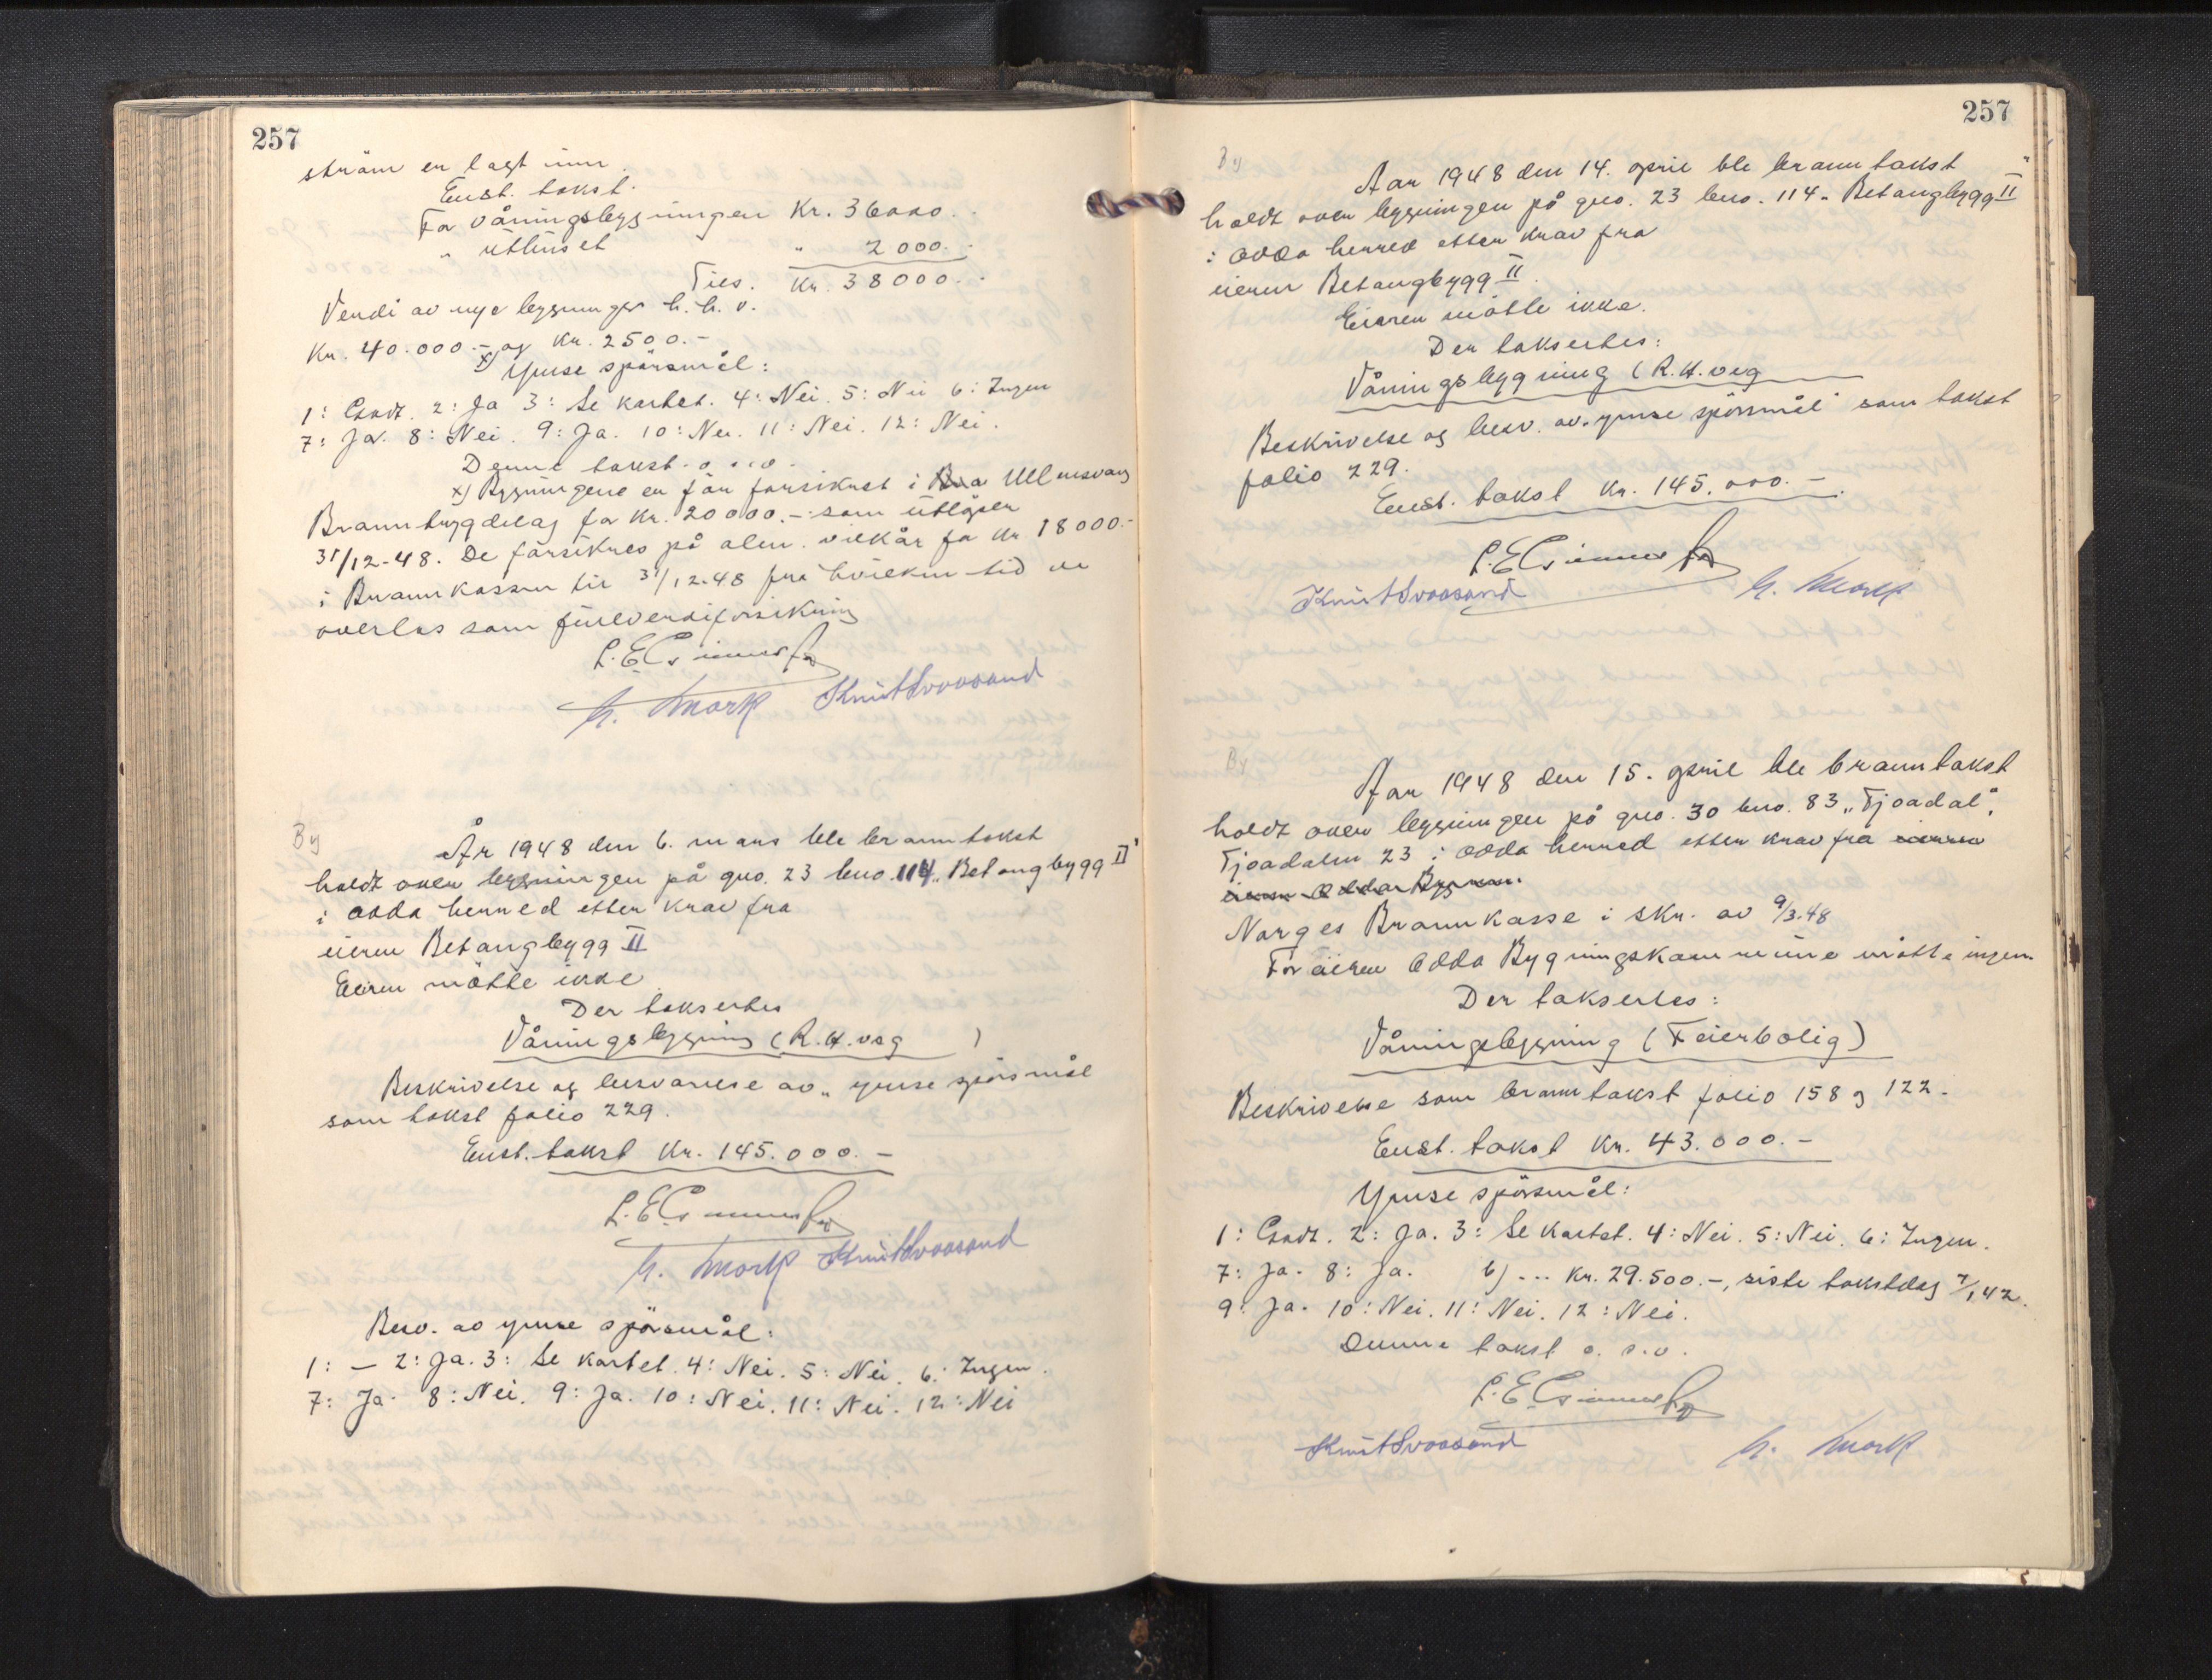 257
strøm er lagt inn.
Enst. takst.
For våningsbygningen Kr. 36000.-
" uthuset " 2000.-
Tils. Kr. 38000.-
Verdi av nye bygninger h. h. v.
Kr. 40.000.- og Kr. 2500.-
x) Ymse spörsmål:
1: Godt. 2: Ja 3: Se kartet. 4: Nei. 5: Nei 6: Ingen
7: Ja. 8: Nei. 9: Ja. 10: Nei. 11: Nei. 12: Nei.
Denne takst o.s.v.
x) Bygningene er før forsikret i Ullensvang
Branntrygdelag for Kr. 20000.- som utløper
31/12-48. De forsikres på alm. vilkår for Kr 18000.-
i Brannkassen til 31/12-48 fra hvilken tid de
overtas som fullverdiforsikring
H. Mork Knut Svoosand
By
År 1948 den 6. mars ble branntakst
holdt over bygningen på gno. 23 bno. 114 „Betongbygg II"
i Odda herred etter krav fra
eieren Betongbygg II
Eieren møtte ikke
Der taksertes
Våningsbygning (R.H.veg )
Beskrivelse og besvarelse av „ ymse spörsmål
som takst folio 229.
Enst. takst Kr. 145.000.-
H. Mork Knut Svoosand
Besv. av ymse spörsmål:
1: — 2: Ja. 3: Se kartet. 4: Nei. 5: Nei. 6: Ingen.
7: Ja. 8: Nei. 9: Ja. 10: Nei. 11: Nei. 12: Nei
257
By
Aar 1948 den 14. april ble branntakst
holdt over bygningen på gno. 23 bno. 114 „ Betongbygg II"
i Odda herred etter krav fra
eieren Betongbygg II.
Eieren møtte ikke.
Der taksertes:
Våningsbygning (R.H.veg
Beskrivelse og besv. av „ymse spörsmål" som takst
folio 229.
Enst. takst Kr. 145.000.-
Knut Svoosand H. Mork
By
Aar 1948 den 15. april ble branntakst
holdt over bygningen på gno. 30 bno. 83 „Tjoadal",
Tjoadalen 23 i Odda herred etter krav fra eieren
Norges Brannkasse i skr. av 9/3.48
For eieren Odda Bygningskommune møtte ingen.
Der taksertes:
Våningsbygning (Feierbolig)
Beskrivelse som branntakst folio 158 og 122.
Enst. takst Kr. 43.000.-
Ymse spörsmål:
1: Godt. 2: Ja. 3: Se kartet. 4: Nei. 5: Nei. 6: Ingen.
7: Ja. 8: Ja. b) ... Kr. 29.500.-, siste takstdag 7/1 42.
9: Ja. 10: Nei. 11: Nei. 12: Nei.
Denne takst o. s. v.
Knut Svoosand H. Mork